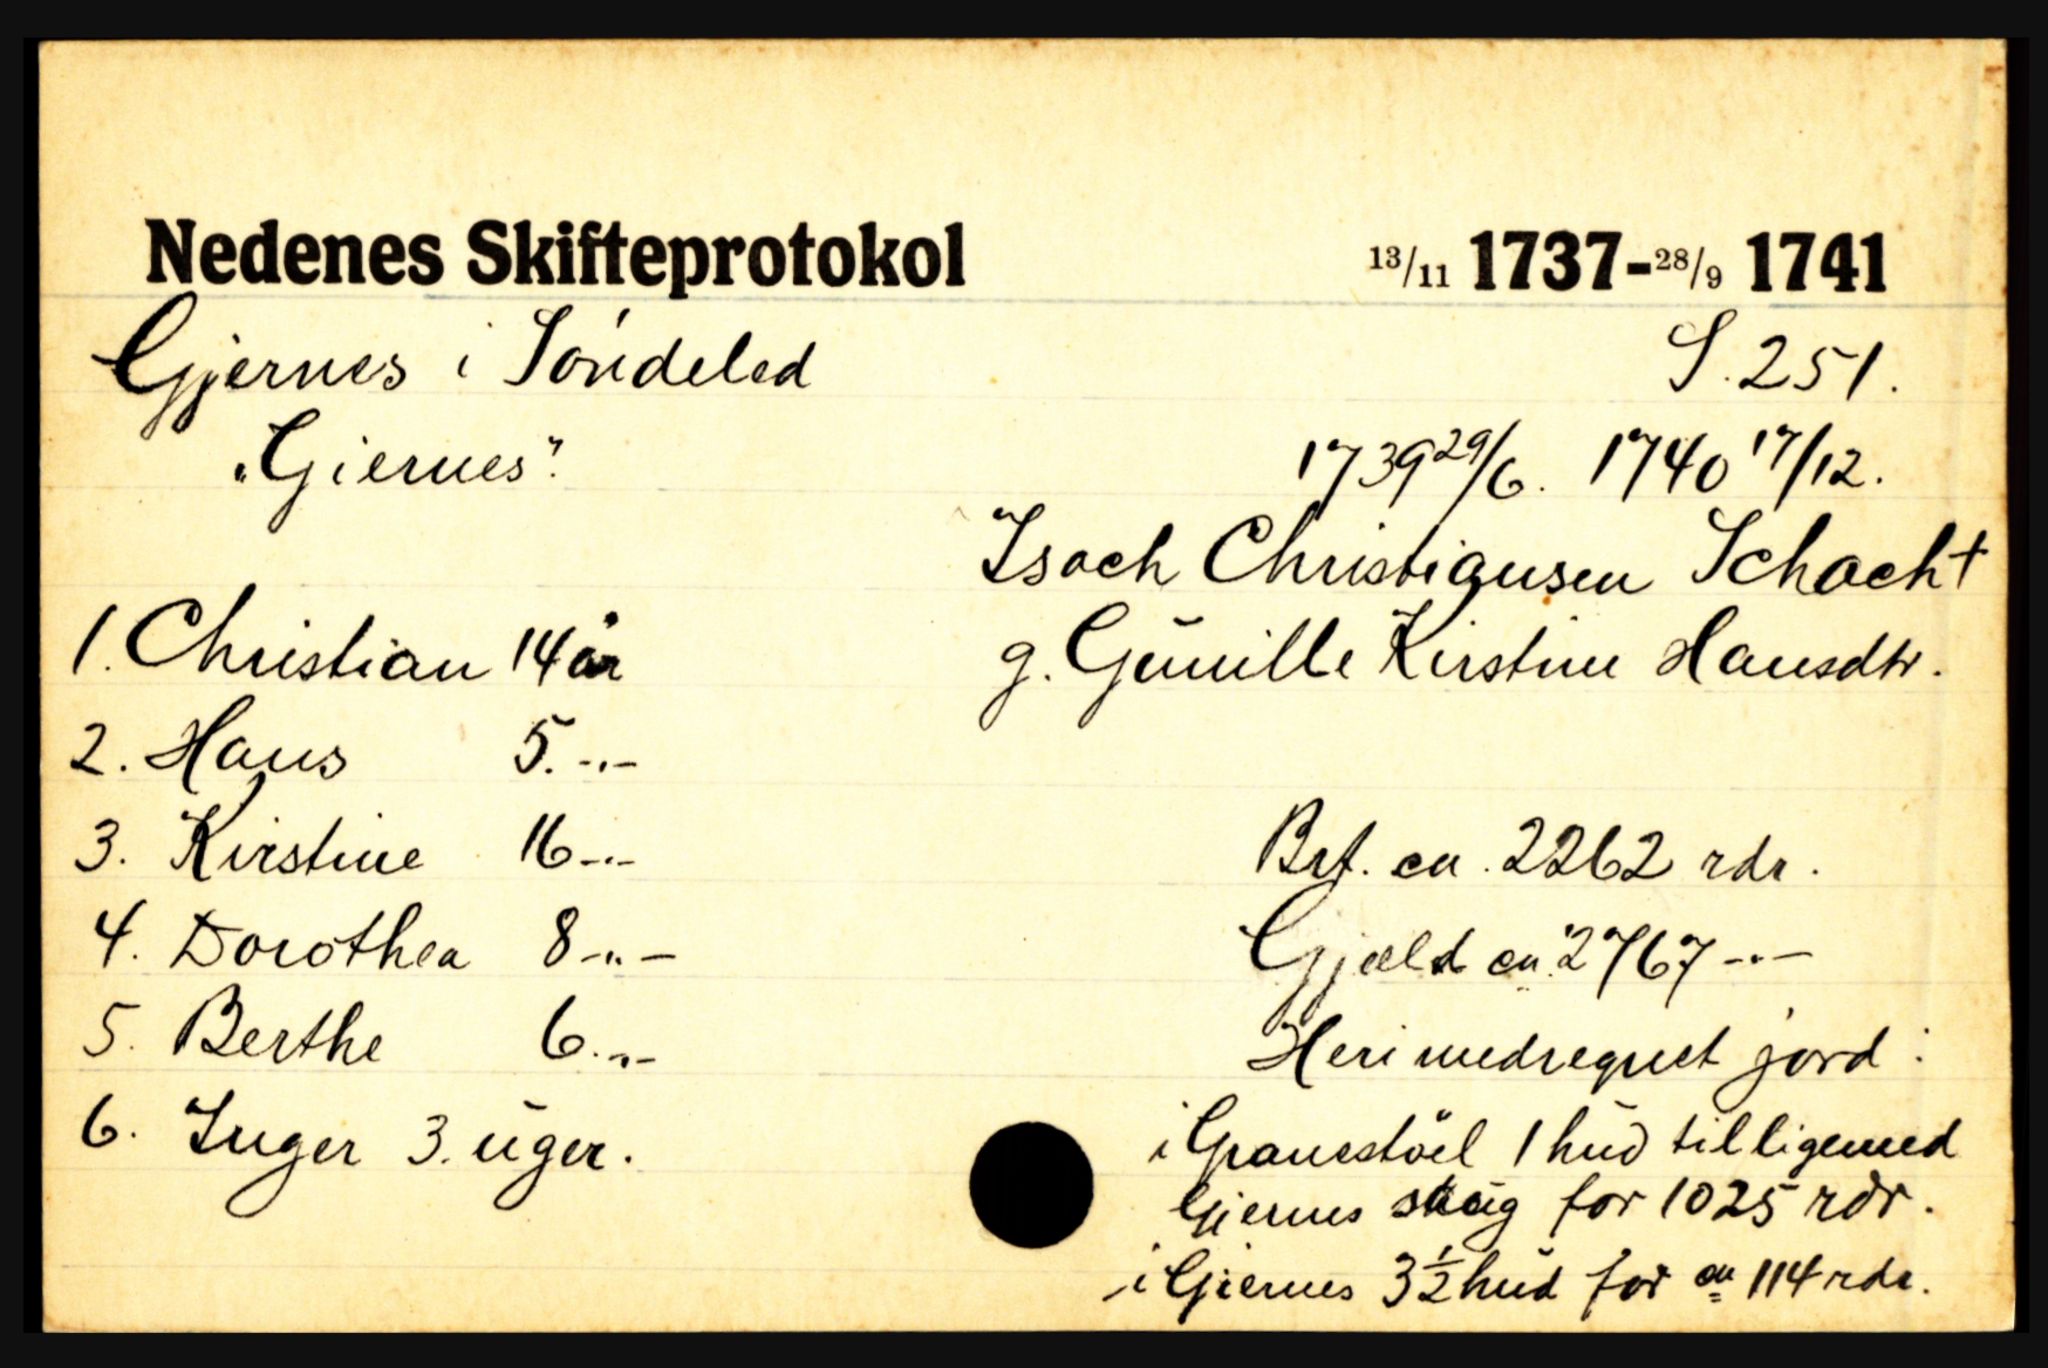 Nedenes Skifteprotokol 13/11 1737-28/9 1741
Gjernes i Söndeled S. 251.
"Giernes". 1739 29/6. 1740 17/12.
Isach Christiansen Schacht
g. Gunille Kirstine Hansdtr.
1. Christian 14 år
2. Hans 5. -"-
3. Kirstine 16 -"-
4. Dorothea 8 -"-
5. Berthe 6. -"-
6. Inger 3. uger.
Brf. ca. 2262 rdr.
Gjæld ca. 2767 -"-
Heri medregnet jord:
i Granestöel 1 hud tilligemed
Gjernes skug for 1025 rdr.
i Giernes 3 1/2 hud for ca 114 rdr.